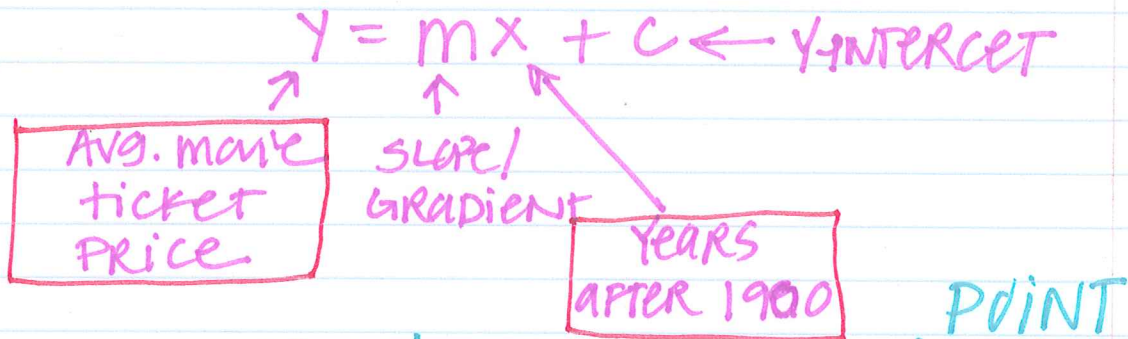 y = mx + c ← Y-INTERCET
Avg. movie
ticket
PRice
SLOPE/
GRADIENT
YEARS
AFTER 1900
POINT